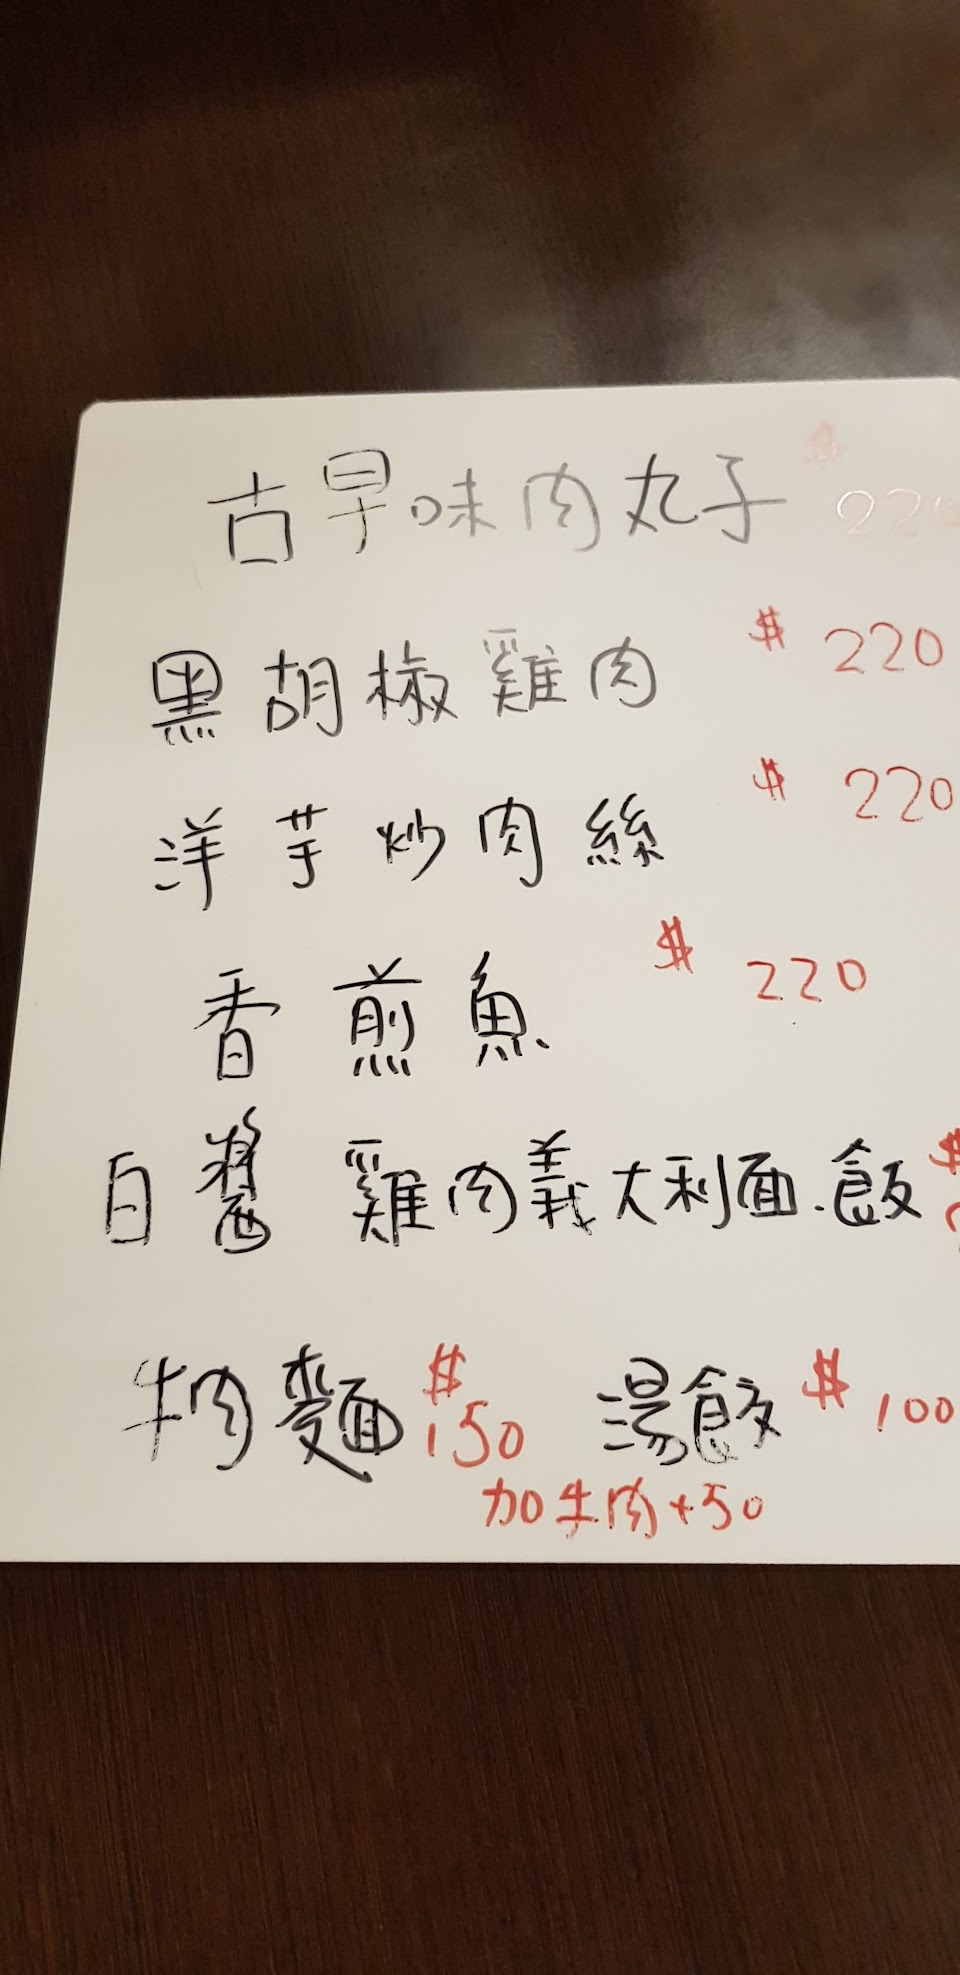 古早味肉丸子 $ 220
黑胡椒雞肉 $ 220
洋芋炒肉絲 $ 220
香煎魚 $ 220
白醬雞肉義大利面.飯 $
牛肉麵 $150 湯餃 $100
加牛肉+50